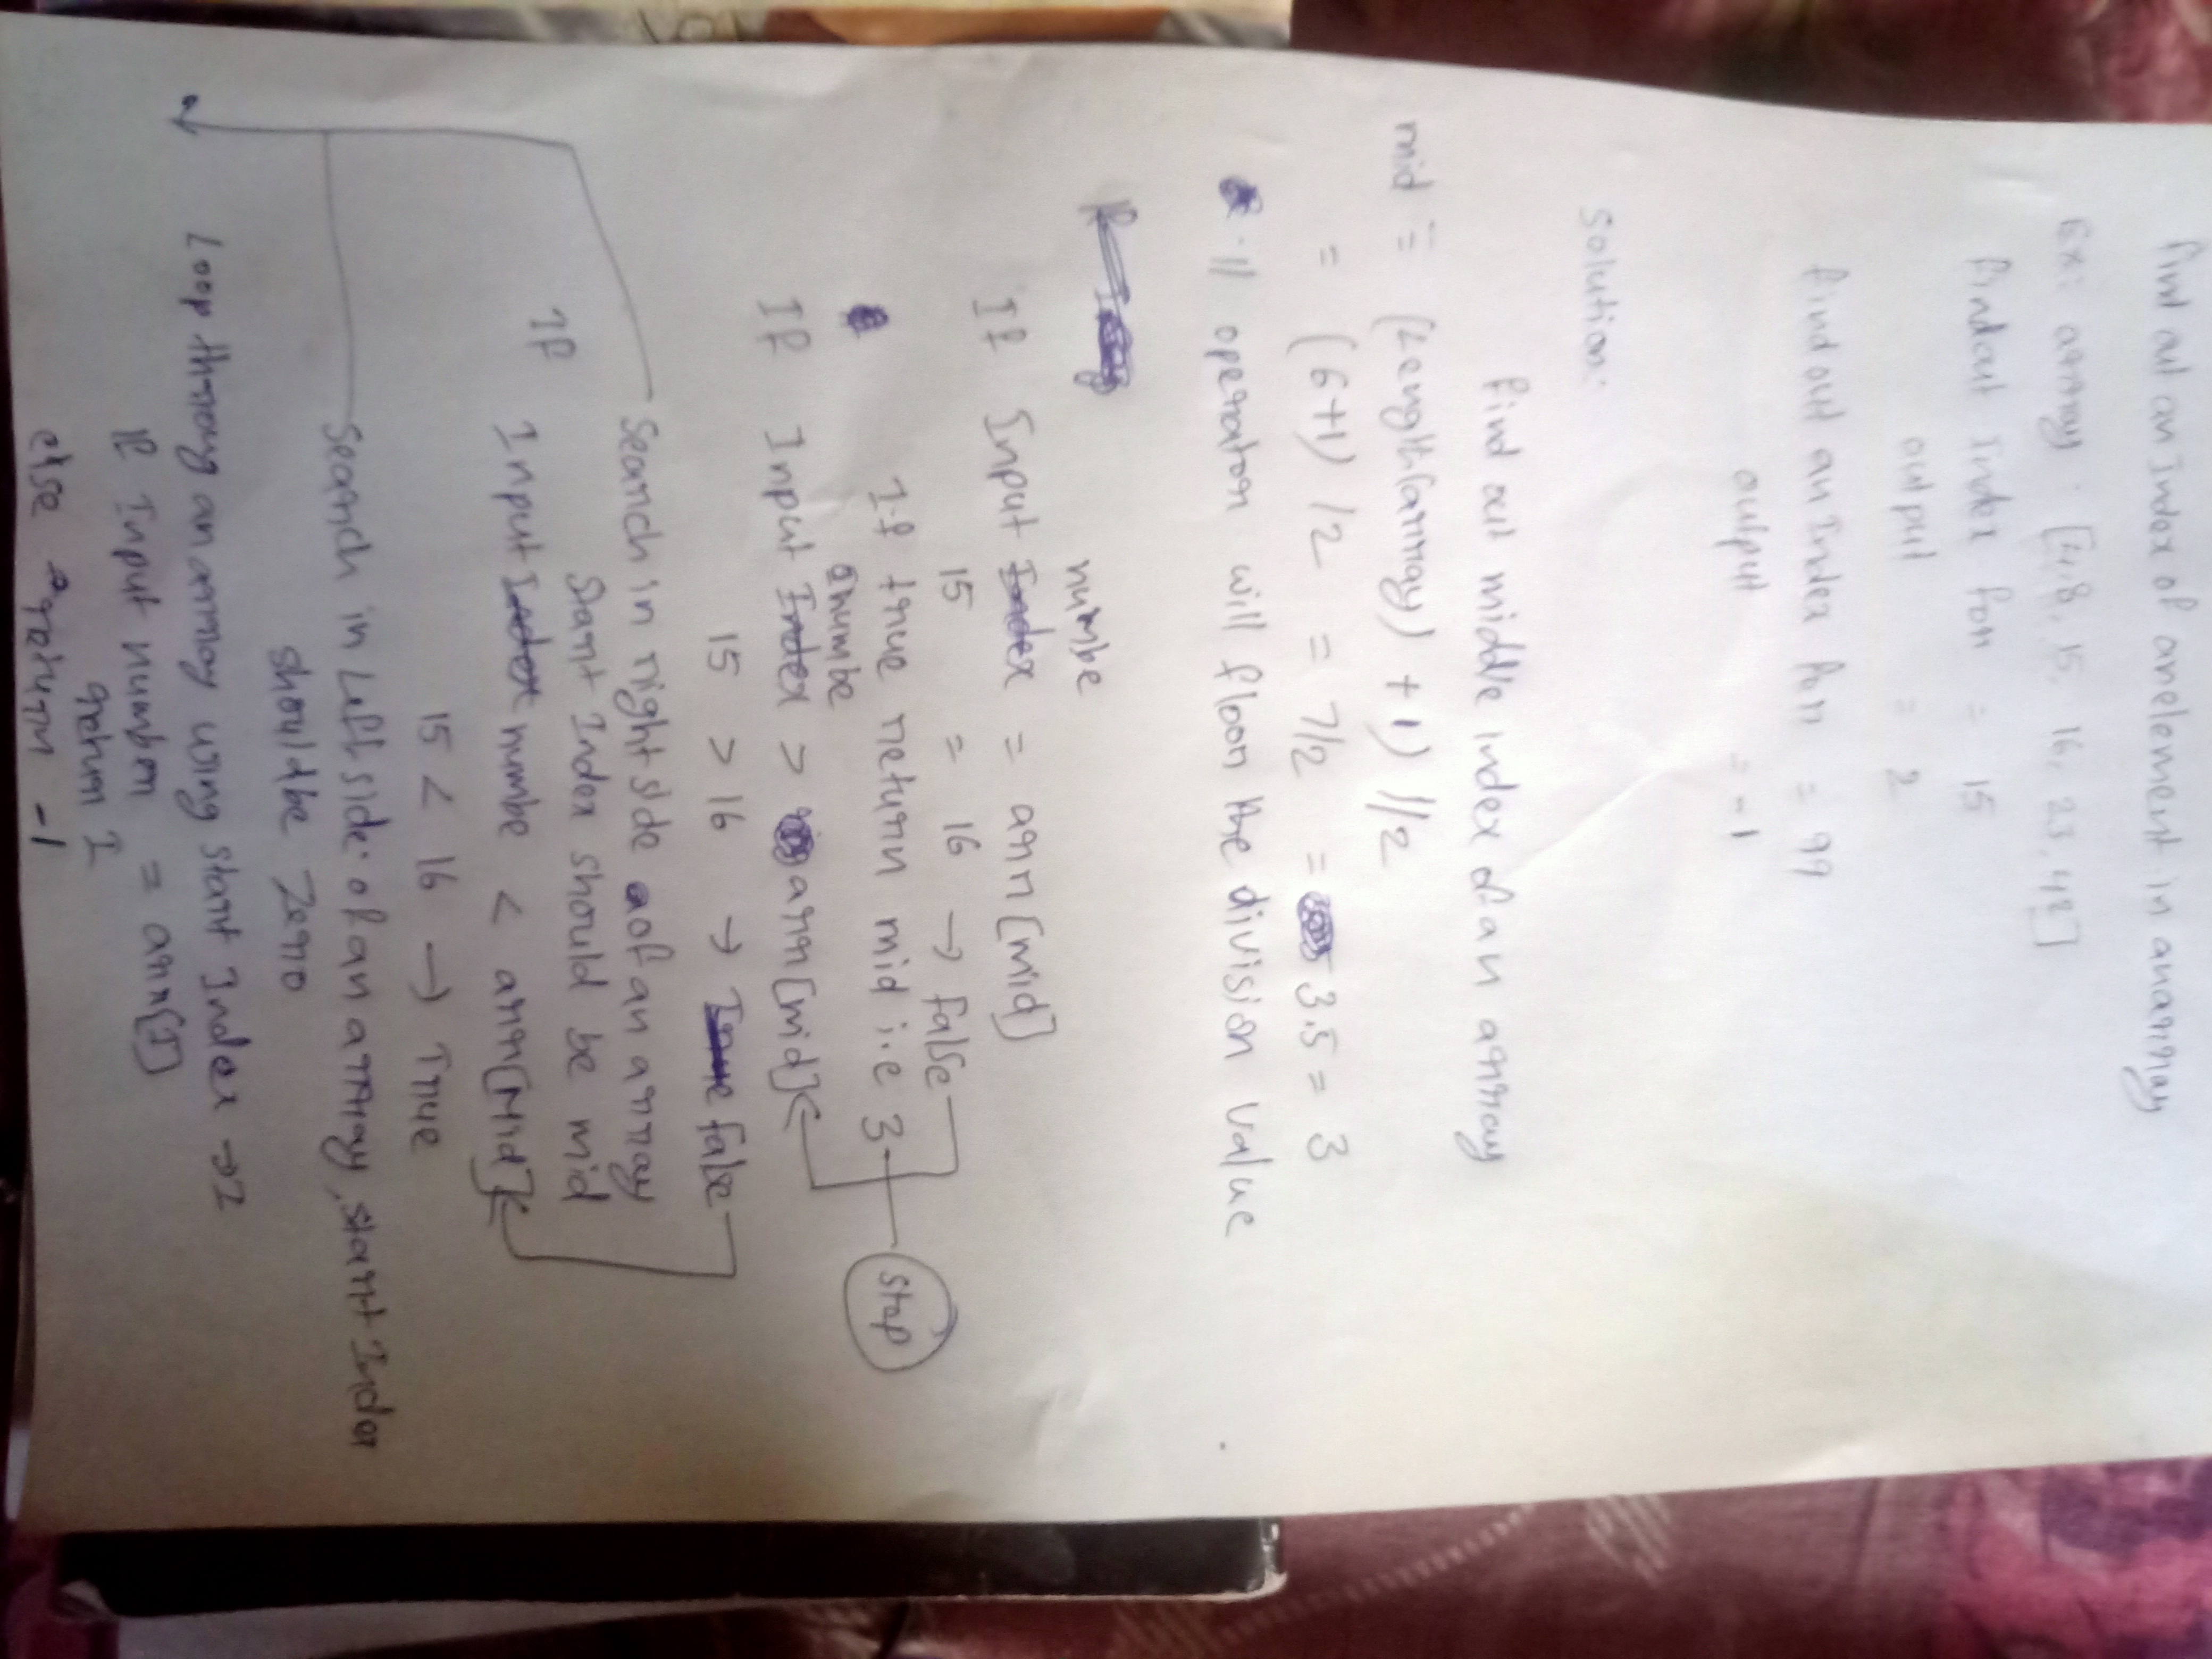 find out an Index of anelement in anarray
Ex: array : [4,8, 15, 16, 23, 42]
findout Index for = 15
output = 2
find out an Index for = 99
output = -1
solution:
find out middle index of an array
mid = (Length(array) + 1) //2
= (6+1) /2 = 7/2 = 3.5 = 3
// operator will floor the division value
numbe
If Input Index = arr[mid]
15 = 16 → false
If true return mid i.e 3
stop
numbe
If Input Index > arr[mid]
15 > 16 → True false
Search in right side of an array
Start Index should be mid
If Input Index numbe < arr[Mid]
15 < 16 → True
Search in Left side of an array, start Index
should be Zero
Loop throug an array using start Index → I
If Input number = arr[I]
return I
else return -1